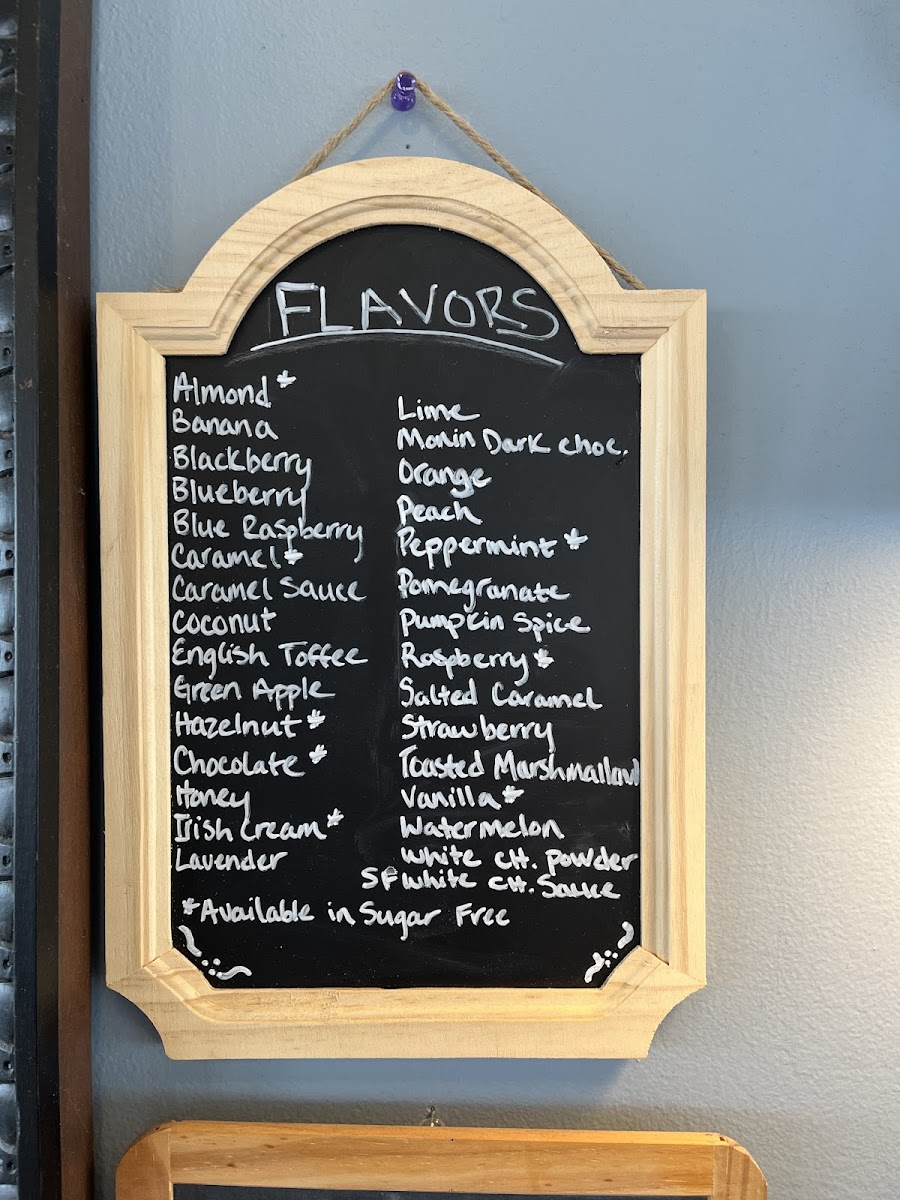 FLAVORS
Almond*
Banana
Blackberry
Blueberry
Blue Raspberry
Caramel*
Caramel Sauce
Coconut
English Toffee
Green Apple
Hazelnut*
Chocolate*
Honey
Irish Cream*
Lavender
Lime
Monin Dark choc.
Orange
Peach
Peppermint*
Pomegranate
Pumpkin Spice
Raspberry*
Salted Caramel
Strawberry
Toasted Marshmallow
Vanilla*
Watermelon
White CH. powder
SF White CH. Sauce
*Available in Sugar Free